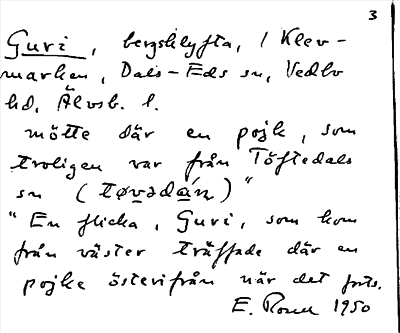 3
Guri, bergsklyfta, i Klev-
marken, Dals-Eds sn, Vedbo
hd, Älvsb. l.
mötte där en pojk, som
troligen var från Töftedals
sn (tøvədán) "
"En flicka, Guri, som kom
från väster träffade där en
pojke österifrån när det forts.
E. 1950